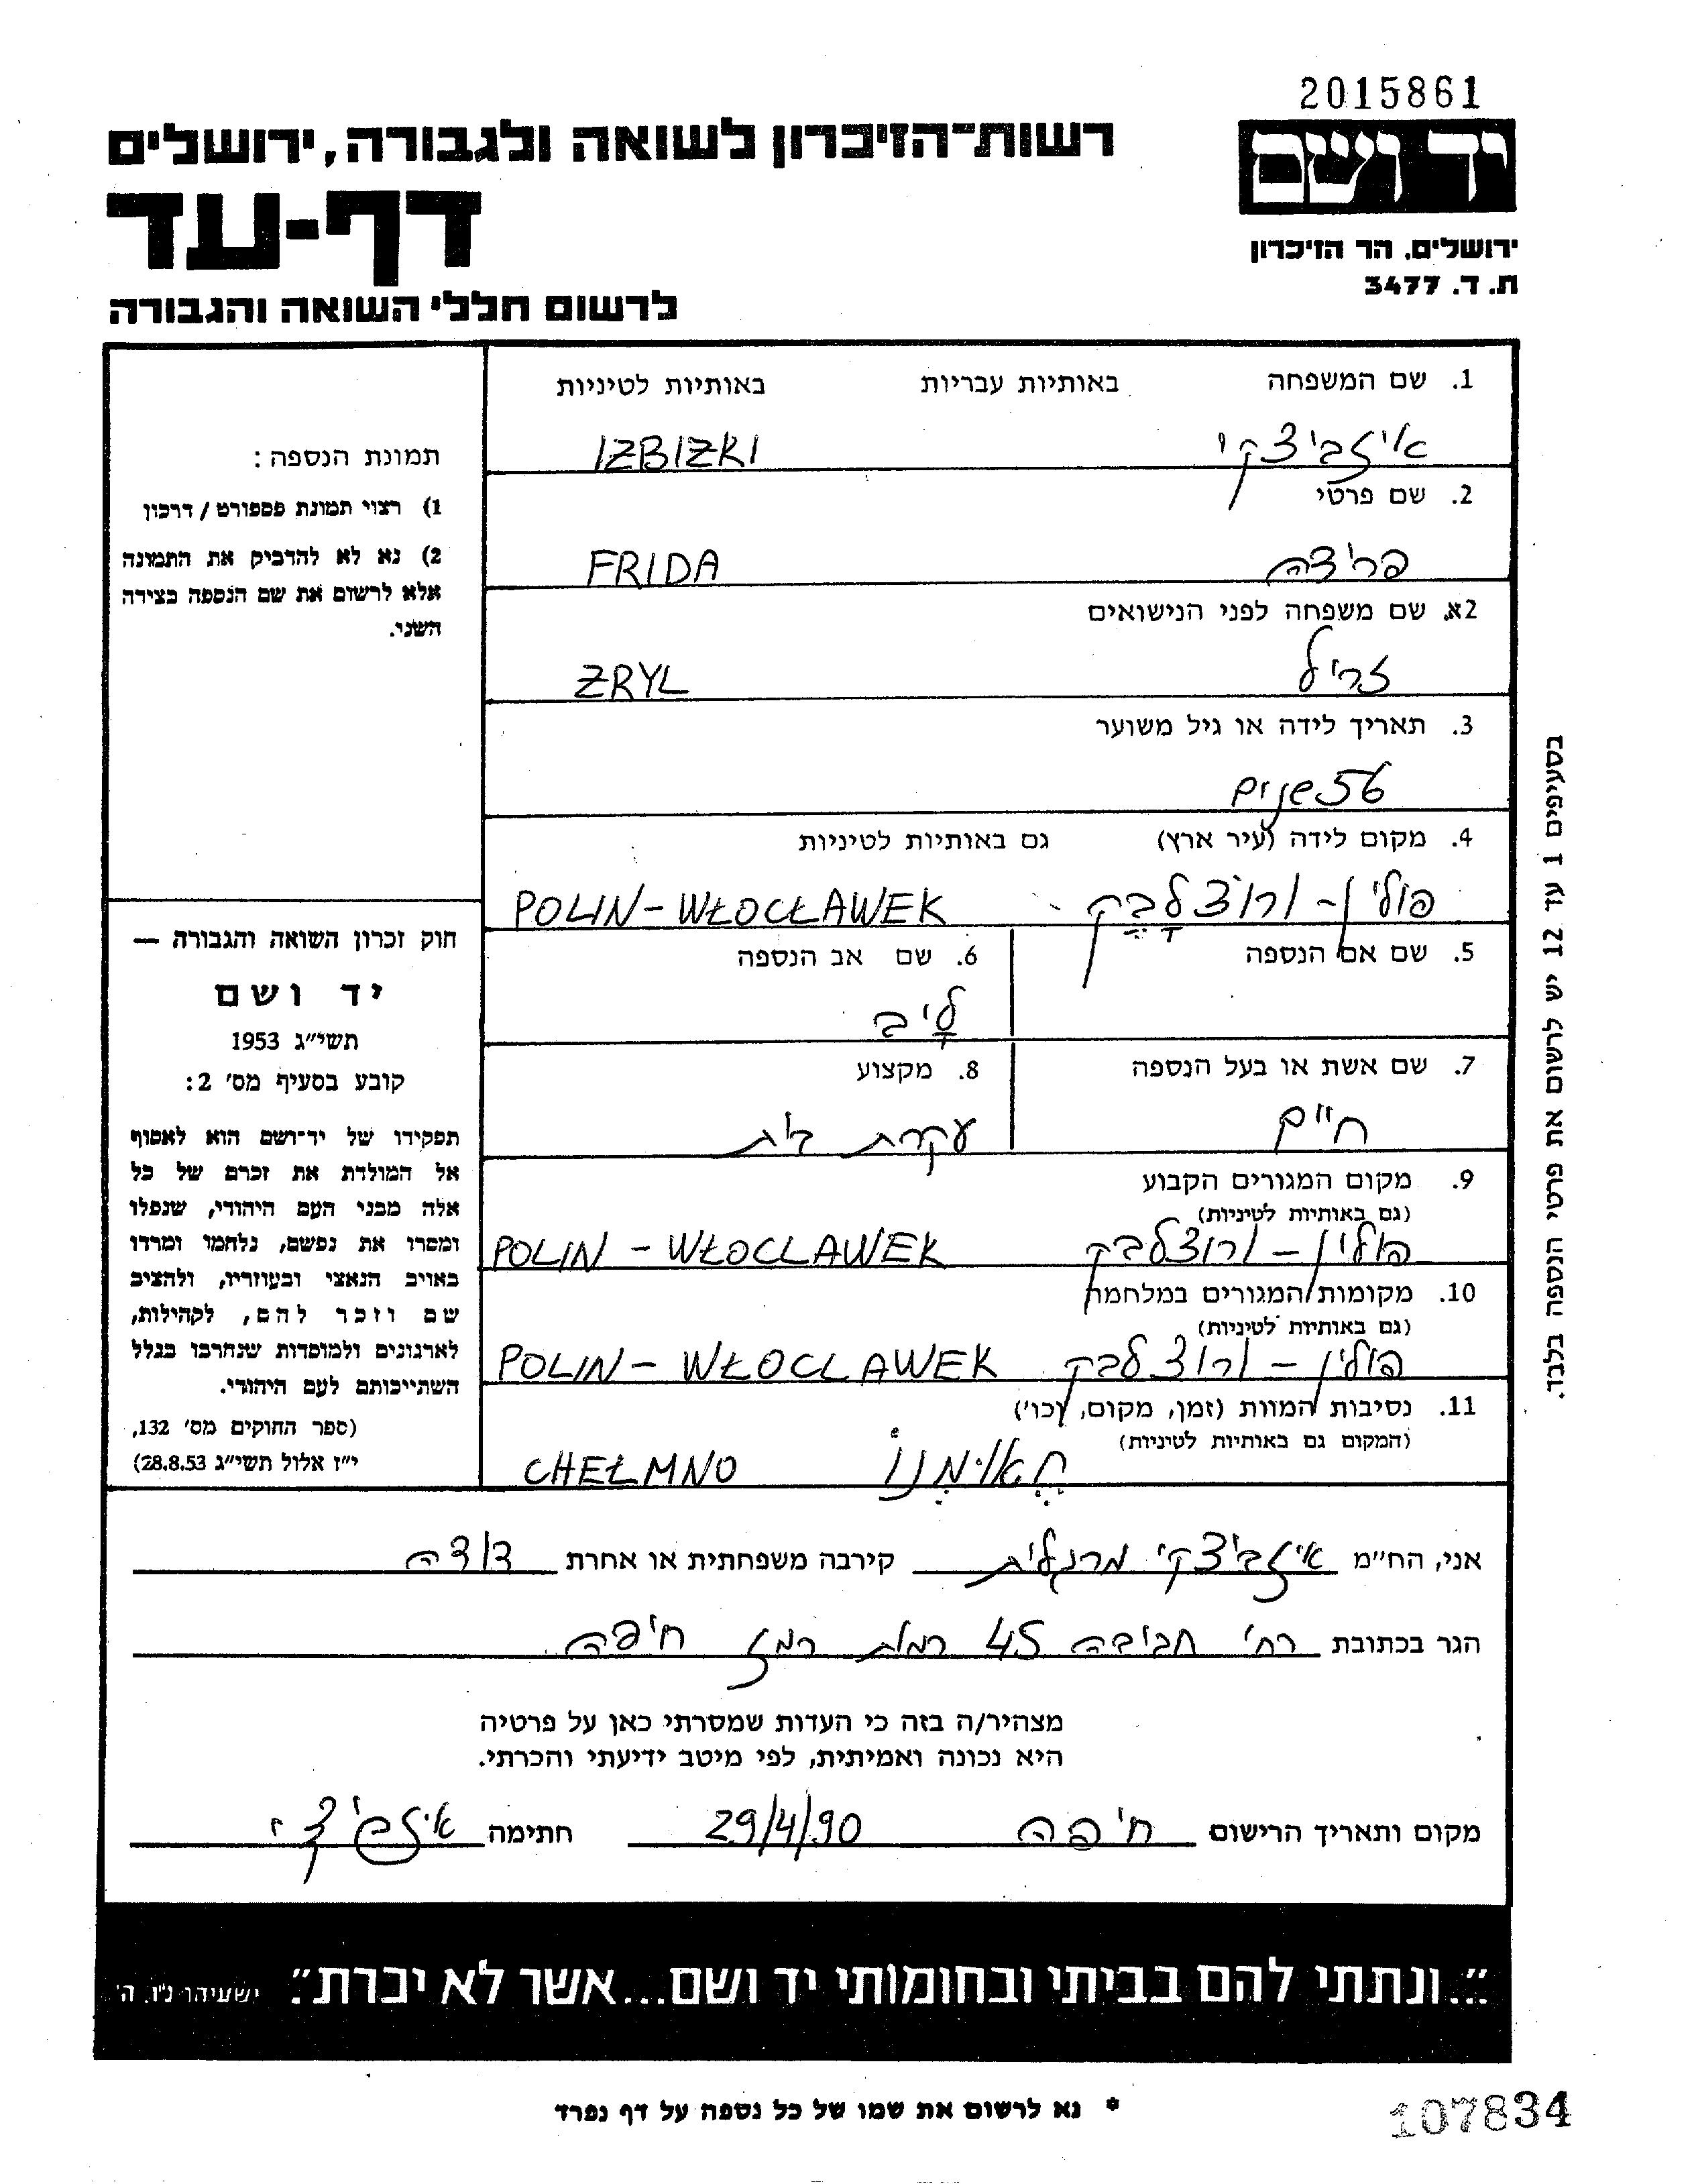 2015861
יד ושם
רשות-הזיכרון לשואה ולגבורה, ירושלים
דף-עד
ירושלים, הר הזיכרון
ת. ד. 3477
לרשום חללי השואה והגבורה
1. שם המשפחה באותיות עבריות באותיות לטיניות
איזביצקי IZBIZKI
2. שם פרטי
פרידה FRIDA
2א. שם משפחה לפני הנישואים
זריל ZRYL
3. תאריך לידה או גיל משוער
56 שנים
4. מקום לידה (עיר ארץ) גם באותיות לטיניות
פולין - ורוצלבק POLIN - WŁOCŁAWEK
5. שם אם הנספה 6. שם אב הנספה
לייב
7. שם אשת או בעל הנספה 8. מקצוע
חיים עקרת בית
9. מקום המגורים הקבוע
(גם באותיות לטיניות)
פולין - ורוצלבק POLIN - WŁOCLAWEK
10. מקומות המגורים במלחמה
(גם באותיות לטיניות)
פולין - ורוצלבק POLIN - WŁOCLAWEK
11. נסיבות המוות (זמן, מקום, וכו')
(המקום גם באותיות לטיניות)
CHEŁMNO
תמונת הנספה:
1) רצוי תמונת פספורט / דרכון
2) נא לא להדביק את התמונה
אלא לרשום את שם הנספה בצידה
השני.
חוק זכרון השואה והגבורה —
יד ושם
תשי"ג 1953
קובע בסעיף מס' 2:
תפקידו של יד-ושם הוא לאסוף
אל המולדת את זכרם של כל
אלה מבני העם היהודי, שנפלו
ומסרו את נפשם, נלחמו ומרדו
באויב הנאצי ובעוזריו, ולהציב
שם וזכר להם, לקהילות,
לארגונים ולמוסדות שנחרבו בגלל
השתייכותם לעם היהודי.
(ספר החוקים מס' 132,
י"ז אלול תשי"ג 28.8.53)
בסעיפים 1 עד 12 יש לרשום את פרטי הנספה בלבד.
אני, הח"מ איזביצקי מרגלית קירבה משפחתית או אחרת דודה
הגר בכתובת רח' חביבה 45 רמת רמז חיפה
מצהיר/ה בזה כי העדות שמסרתי כאן על פרטיה
היא נכונה ואמיתית, לפי מיטב ידיעתי והכרתי.
מקום ותאריך הרישום חיפה 29/4/90 חתימה איזביצקי
"...ונתתי להם בביתי ובחומותי יד ושם...אשר לא יכרת". ישעיהו נ"ו, ה'
* נא לרשום את שמו של כל נספה על דף נפרד
107834